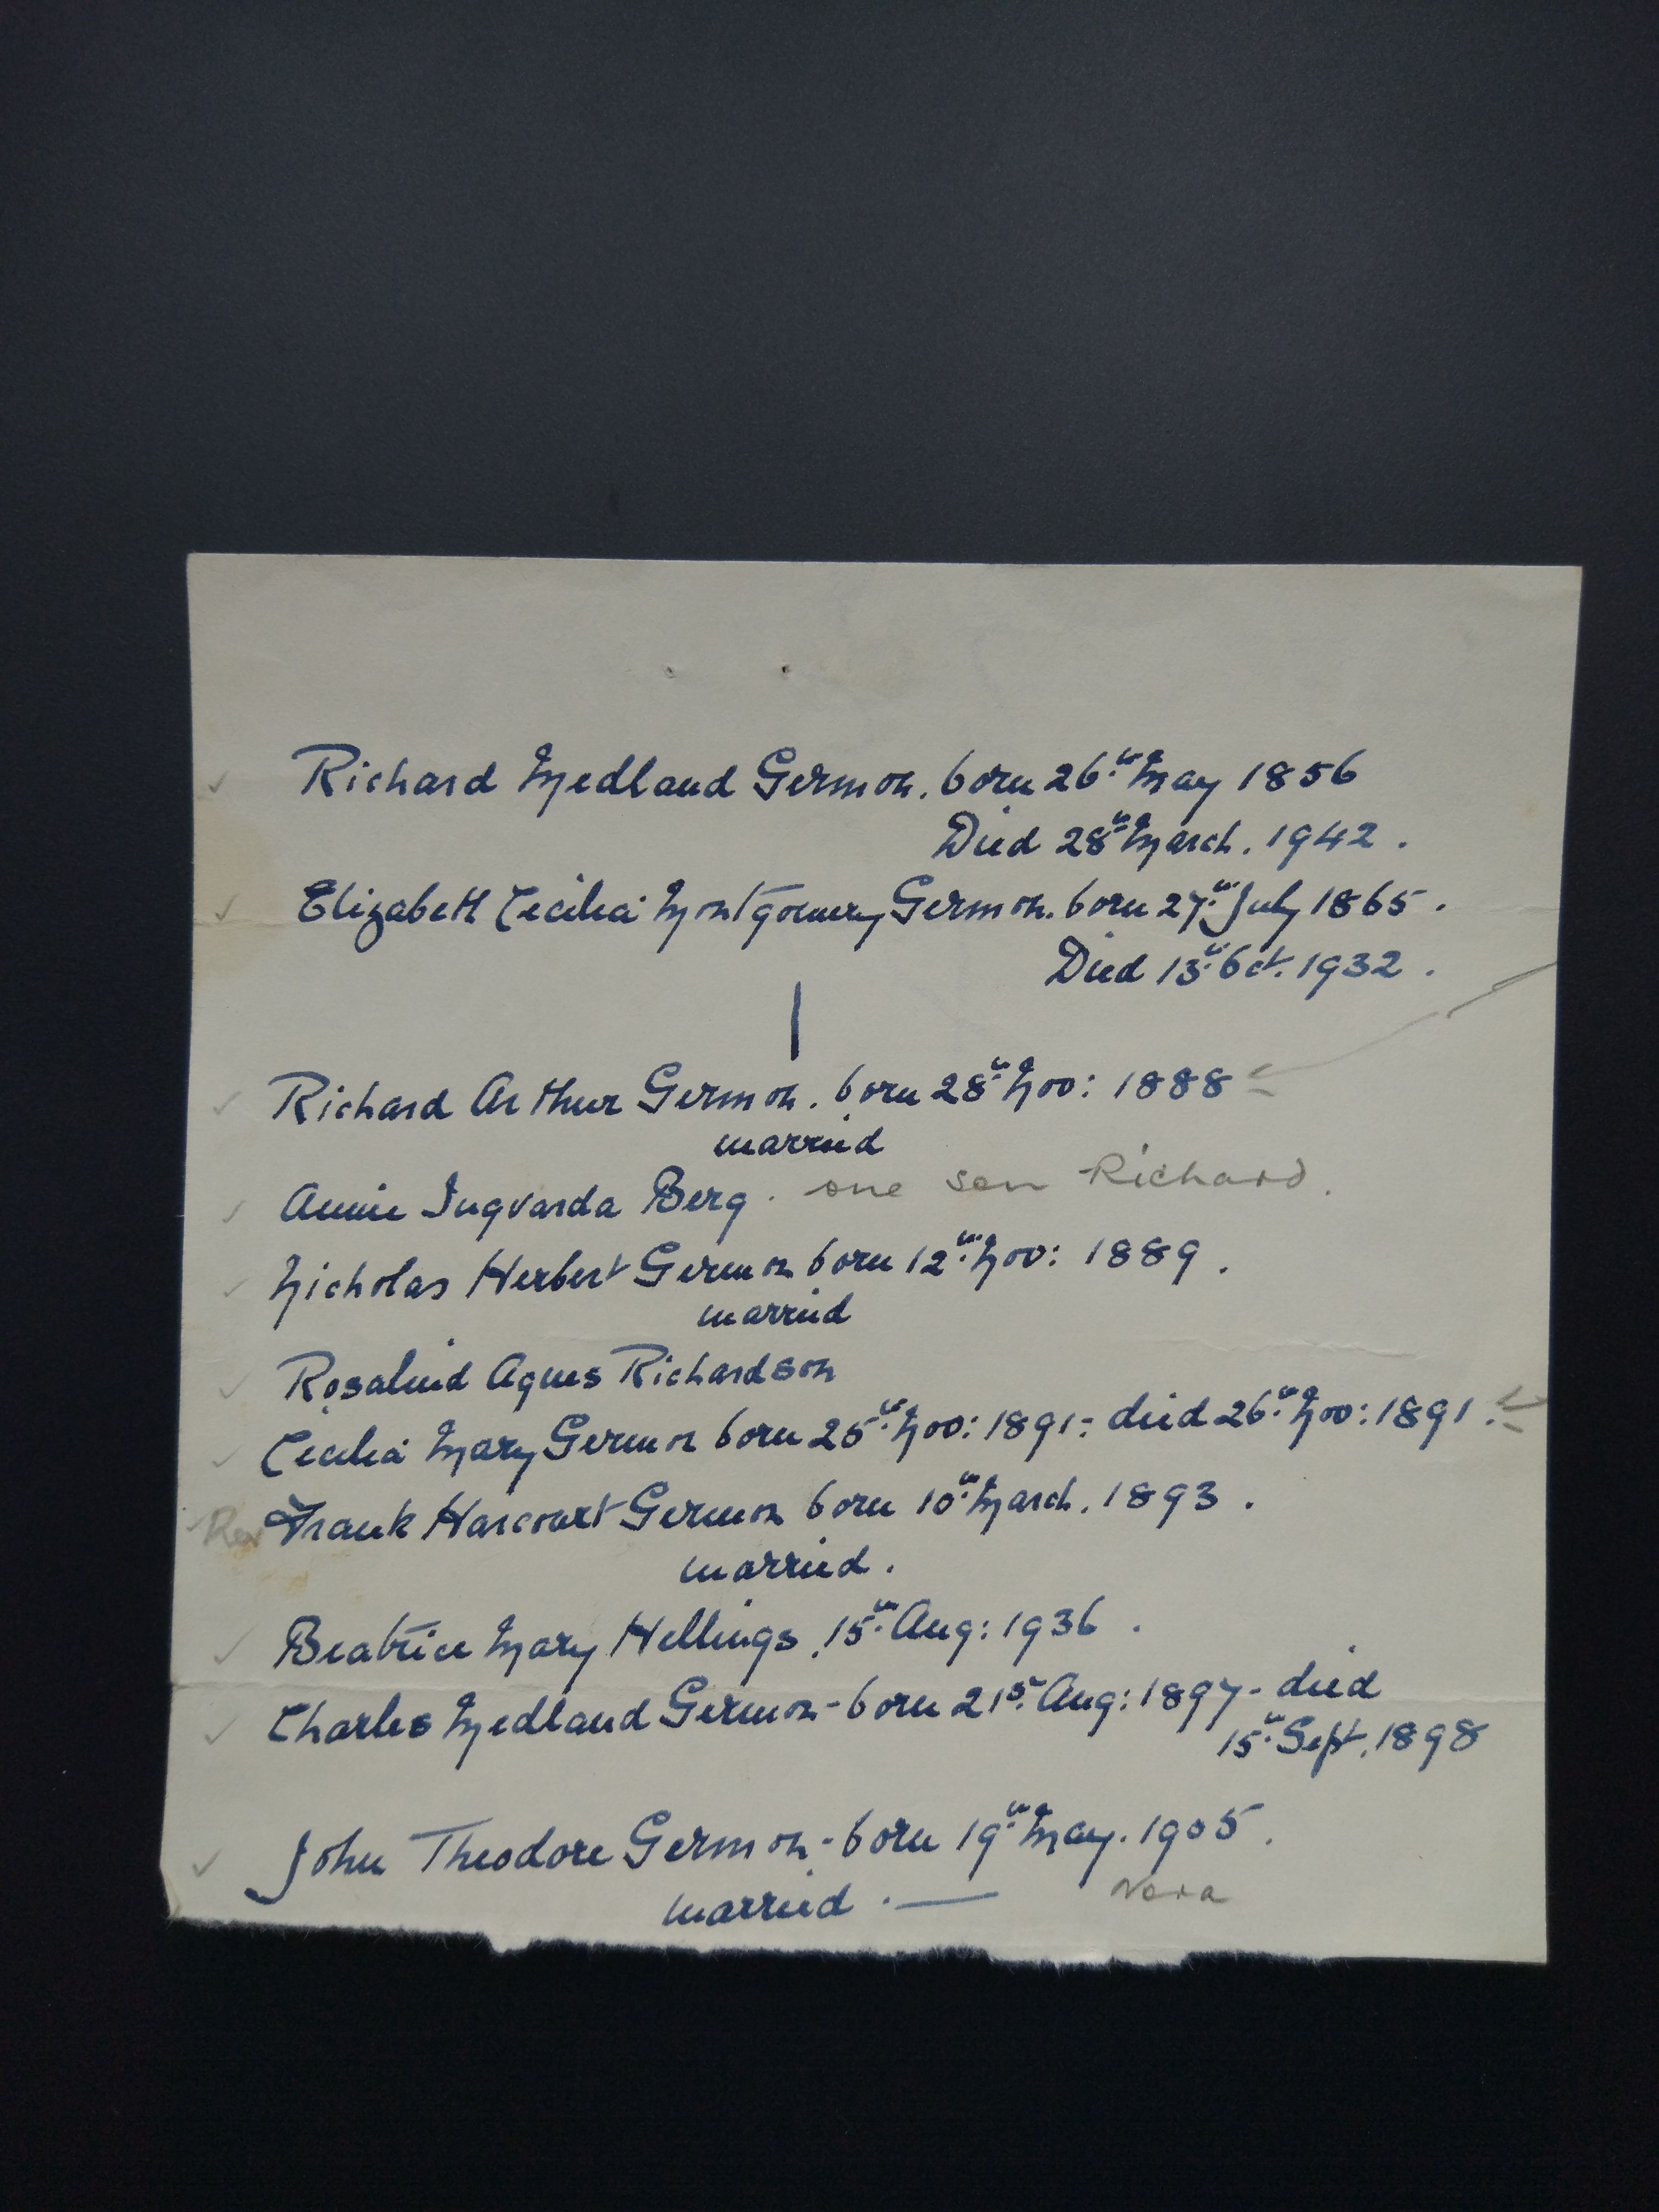 Richard Medland Germon. born 26th May 1856
Died 28th March. 1942.
Elizabeth Cecilia Montgomery Germon. born 27th July 1865.
Died 13th Oct. 1932.
Richard Arthur Germon. born 28th Nov: 1888
married
Annie Ingvarda Berg. one son Richard.
Nicholas Herbert Germon born 12th Nov: 1889.
married
Rosalind Agnes Richardson
Cecilia Mary Germon born 25th Nov: 1891- died 26th Nov: 1891.
Rev Frank Harcourt Germon born 10th March. 1893.
married.
Beatrice Mary Hellings, 15th Aug: 1936.
Charles Medland Germon - born 21st Aug: 1897 - died
15th Sept. 1898
John Theodore Germon - born 19th May. 1905.
married. — Nora